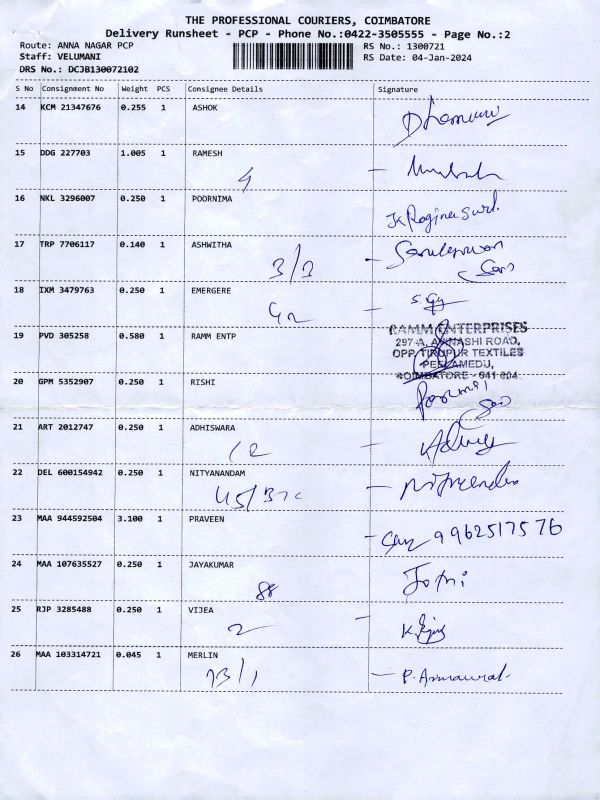 THE PROFESSIONAL COURIERS, COIMBATORE
Delivery Runsheet - PCP - Phone No.:0422-3505555 - Page No.:2
Route: ANNA NAGAR PCP RS No.: 1300721
Staff: VELUMANI RS Date: 04-Jan-2024
DRS No.: DCJB130072102
S No Consignment No Weight PCS Consignee Details Signature
14 KCM 21347676 0.255 1 ASHOK
15 DDG 227703 1.005 1 RAMESH
4
16 NKL 3296007 0.250 1 POORNIMA
17 TRP 7706117 0.140 1 ASHWITHA
3/3
18 IXM 3479763 0.250 1 EMERGERE
19 PVD 305258 0.580 1 RAMM ENTP
RAMM ENTERPRISES
297-A, AVINASHI ROAD,
OPP. TIRUPUR TEXTILES
PEELAMEDU,
COIMBATORE - 641 004.
20 GPM 5352907 0.250 1 RISHI
21 ART 2012747 0.250 1 ADHISWARA
22 DEL 600154942 0.250 1 NITYANANDAM
23 MAA 944592504 3.100 1 PRAVEEN
9962517576
24 MAA 107635527 0.250 1 JAYAKUMAR
88
25 RJP 3285488 0.250 1 VIJEA
2
26 MAA 103314721 0.045 1 MERLIN
13/1